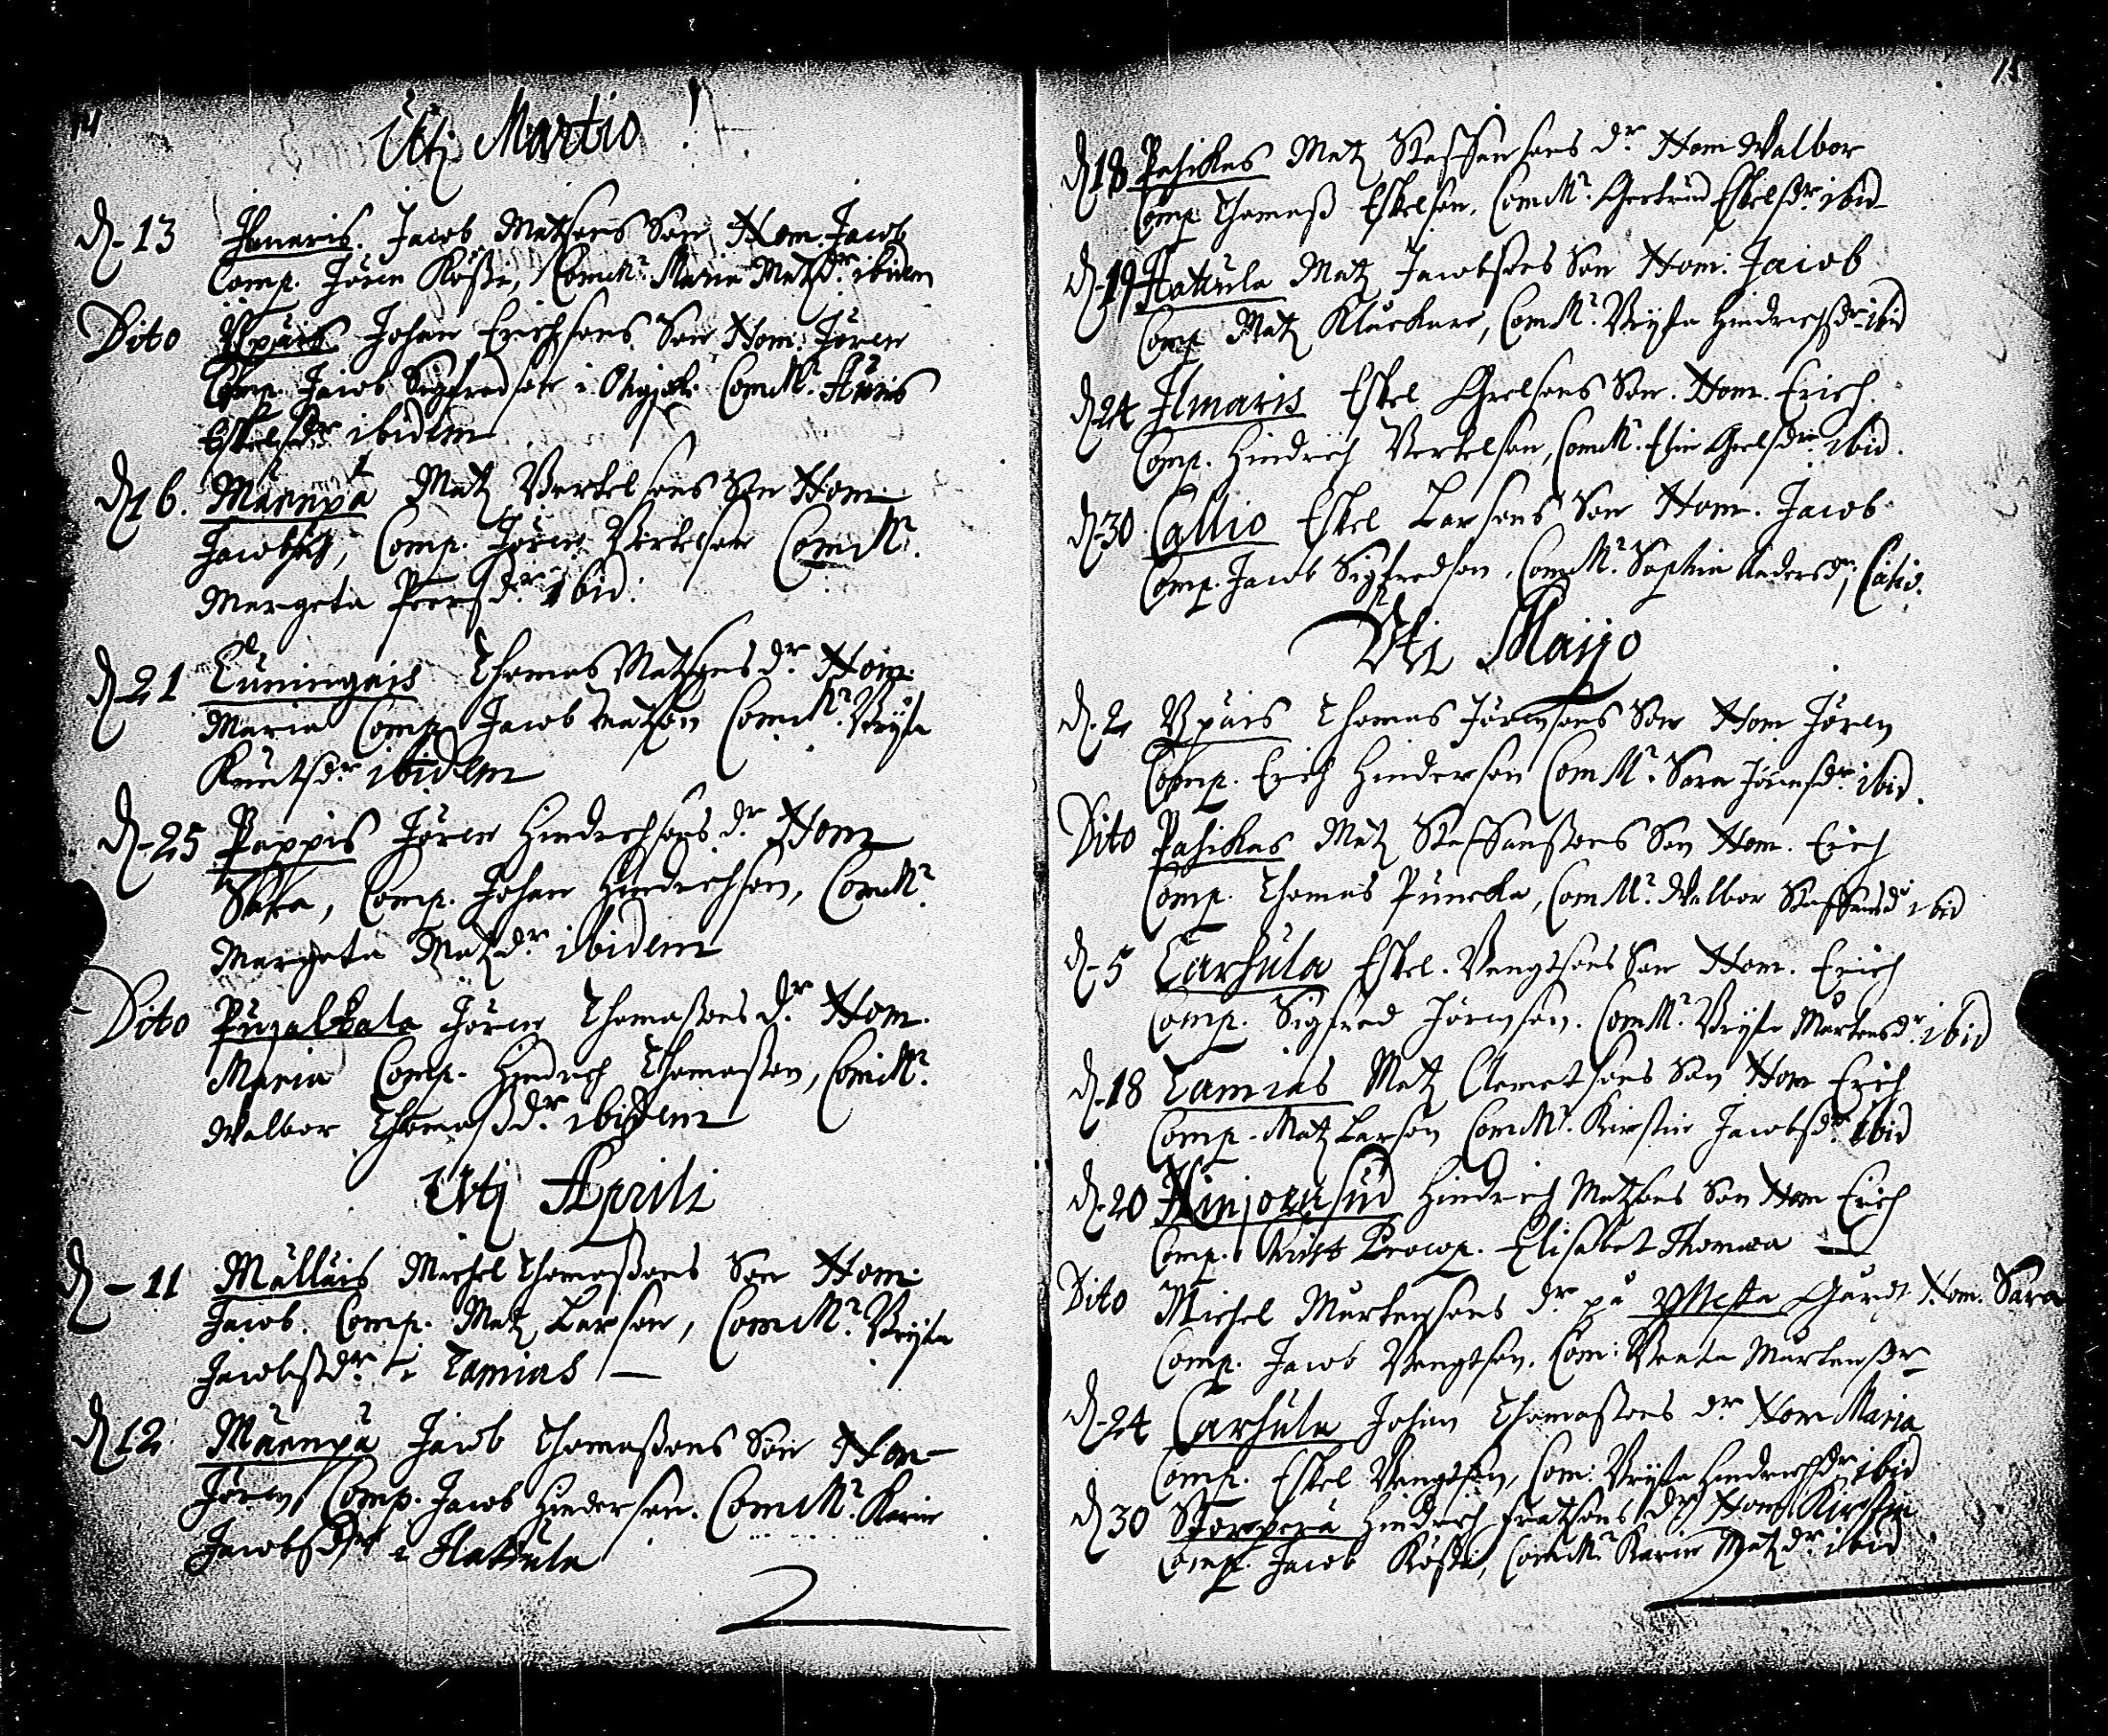 14
Uti Martio
d. 13 Ilmaris. Jacob Matssons Son Nom. Jacob
Comp. Jören Köske, ComM? Maria Matzdr. ibidem
Dito Upäis Johan Erichsons Son. Nom: Jören
Comp. Jacob Sigfredson i ComM?
Eskelsdr ibidem
d. 16. Mäenpä Matz Bertelsons Son Nom
Jacobus, Comp. Jören Bertelson ComM?.
Margeta Peersdr. ibid.
d. 21 Tuningais Thomas Matsons dr. Nom:
Maria Comp. Jacob Matson ComM?. Brijta
Knutsdr ibidem
d. 25 Pappis Jören Hindrichsons dr. Nom
Sara, Comp. Johan Hindrichson, ComM?
Margeta Matzdr. ibidem
Dito Pugalkala Jören Thomassons dr. Nom.
Maria Comp. Hindrich Thomasson, ComM?.
Walbor Thomassdr. ibidem
Uti Aprili
d. 11 Mälläis Michel Thomassons Son Nom:
Jacob. Comp. Matz Larson, ComM?. Brijta
Jacobssdr. i Tamias —
d. 12 Mäenpä Jacob Thomassons Son Nom
Jören, Comp. Jacob Hinderson. ComM?. Karin
Jacobsdr i Hattula
15
d. 18 Pasikas Matz Steffansons dr. Nom Walbor
Comp. Thomass Eskelson. ComM?. Gertrud Eskelsdr. ibid
d. 19 Hattula Matz Jacobsons Son Nom: Jacob
Comp Matz Kluckare, ComM?. Brijta Hindrichsdr ibid
d. 24 Ilmaris Eskel Grelsons Son. Nom. Erich.
Comp. Hindrich Bertelson, ComM?. Elin Grelsdr. ibid.
d. 30. Callio Eskel Larsons Son Nom. Jacob
Comp. Jacob Sigfredson, ComM?. Sophia Andersdr,
Uti Maijo
d. 2 Upäis Thomas Jörensons Son Nom Jören
Comp. Erich Hinderson ComM?. Sara Jörensdr. ibid.
Dito Pasikas Matz Steffanssons Son Nom. Erich
Comp. Thomas Puncka, ComM?. Walbor Steffansdr ibid
d. 5 Carhula Eskel. Bengtsons Son Nom. Erich
Comp. Sigfred Jörenson. ComM?. Brijta Mårtensdr. ibid
d. 18 Tamias Matz Clemetsons Son Nom Erich
Comp. Matz Larson ComM?. Kirstin Jacobsdr. ibid
d. 20 Hinjoensud Hindrich Matzsons Son Nom Erich
Comp. Elisabet Thomæ —
Dito Michel Mårtensons dr på Gård Nom. Sara
Comp. Jacob Bengtson. Com: Beata Mårtenssdr
d. 24 Carhula Johan Thomassons dr Nom Maria
Comp. Eskel Bengtson, Com: Brijta Hindrichsdr ibid
d 30 Storperä Hindrich Fratzsons dr Nom Kirstin
Comp. Jacob Köske, ComM? Karin Matzdr. ibid